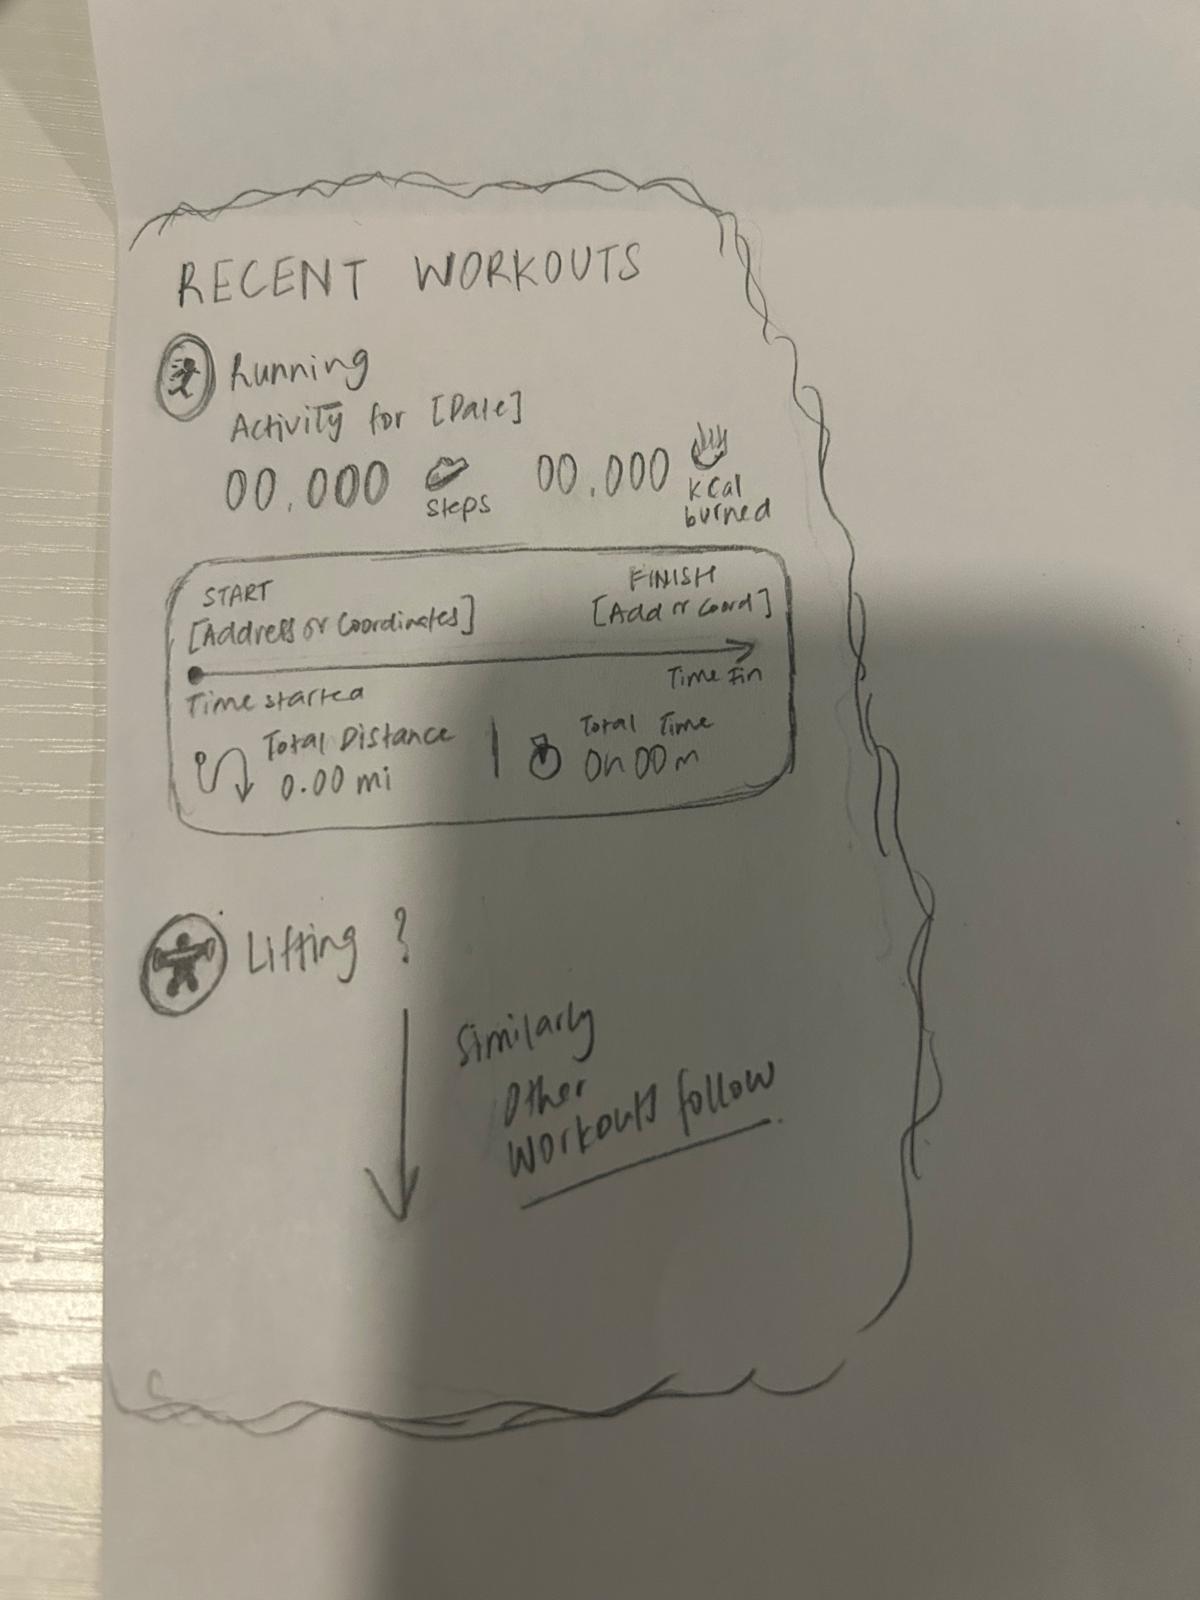 RECENT WORKOUTS
Running
Activity for [Date]
00.000 steps 00.000 kcal burned
START FINISH
[Address or Coordinates] [Add or Coord]
Time started Time Fin
Total Distance | Total Time
0.00 mi 0h 00m
Lifting ?
Similarly
Other
Workouts follow